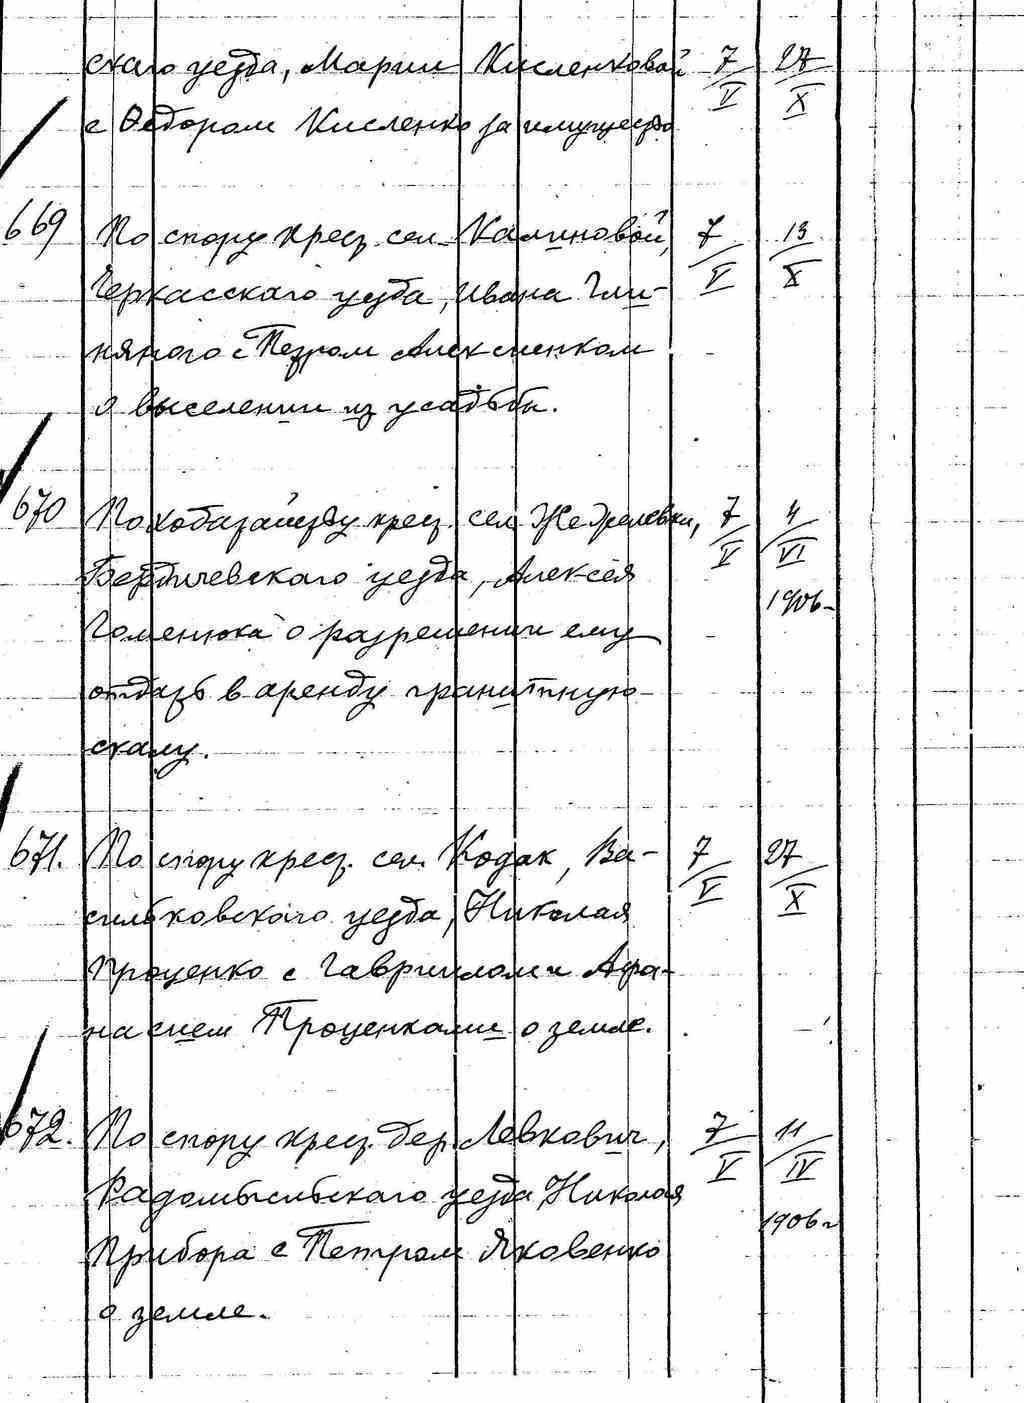 ского уезда, Марии Кисленковой 7/V 27/X
с Федором Кисленко за имущество
669 По спору крест. сел. Калиновой, 7/V 13/X
Черкасского уезда, Ивана Гли-
няного с Петром Алексиенком
о выселении из усадьбы.
670 По ходатайству крест. сел. Жежелевки, 7/V 4/VI
Бердичевского уезда, Алексея 1906
Гоменюка о разрешении ему
отдать в аренду гранитную
скалу.
671. По спору крест. сел. Кодак, Ва- 7/V 27/X
сильковского уезда, Николая
Проценко с Гавриилом и Афа-
насием Проценками о земле.
672. По спору крест. дер. Левкович, 7/V 11/IV
Радомысльского уезда Николая 1906 г
Прибора с Петром Яковенко
о земле.